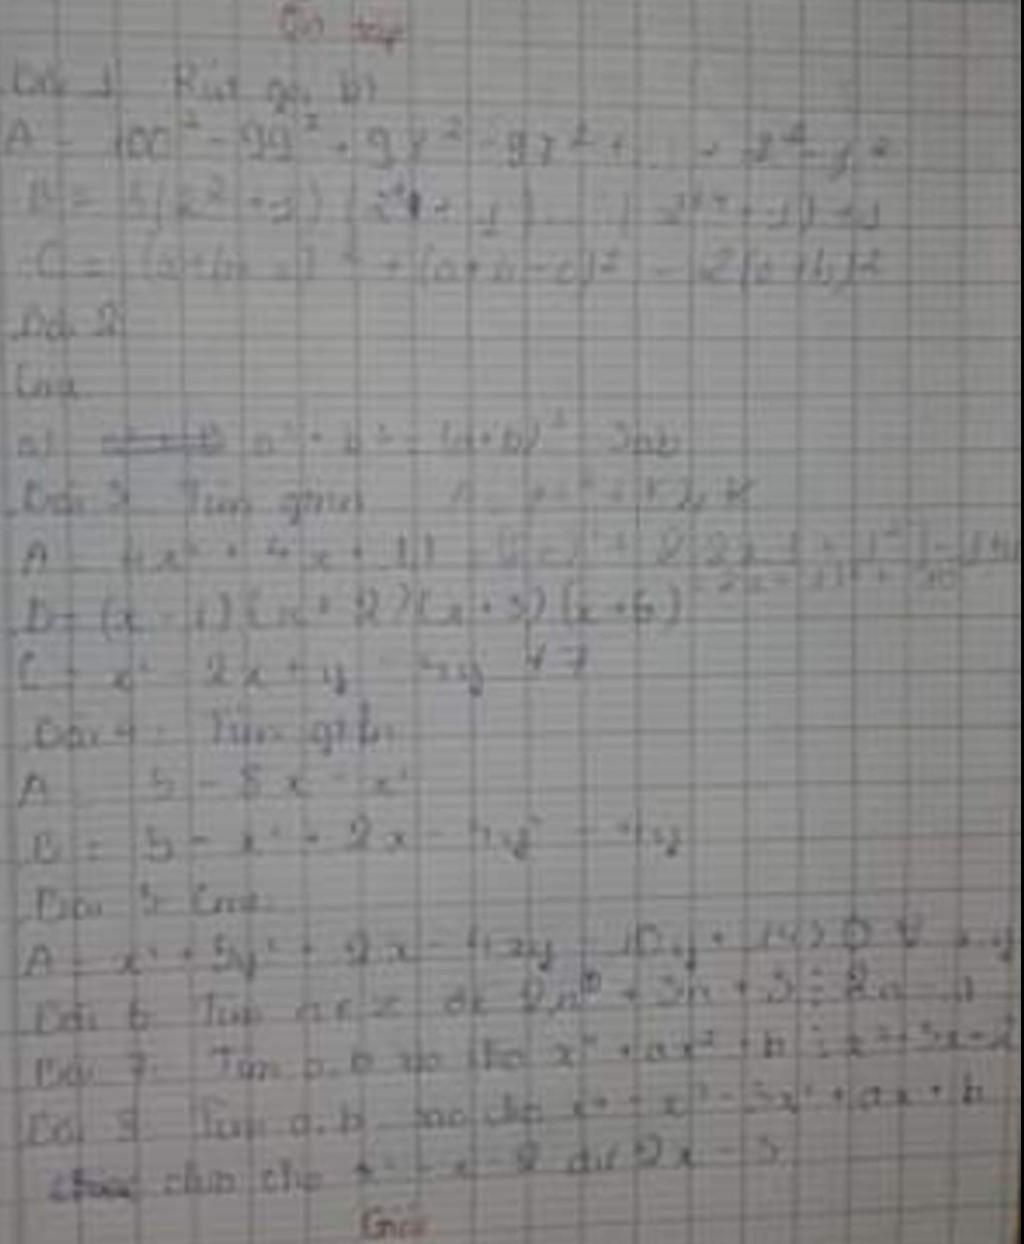 Ôn tập
Bài 1 Rút gọn bt
A = 100² - 99² + 98² - 97² + ... + 2² - 1²
B = 3(2² + 1) (2⁴ + 1) ... ( + 1) + 1
C = (a + b + c)² + (a + b - c)² - 2(a + b)²
Bài 2
Cm
a) a³ + b³ = (a+b)³ - 3ab
Bài 3 Tìm gtnn
A = 4x² + 4x + 11
B = (x - 1)(x + 2)(x + 3)(x + 6)
C = x² - 2x + y² - 4y + 7
Bài 4 Tìm gtln
A = 5 - 8x - x²
B = 5 - x² + 2x - 4y² - 4y
Bài 5 Cmr
A = x² + 5y² + 2x - 4xy - 10y + 14 > 0 ∀ x, y
Bài 6 Tìm n ∈ Z để 2n² + 3n + 3 ⋮ 2n - 1
Bài 7 Tìm a, b sao cho x⁴ + ax² + b ⋮ x² - 3x + 2
Bài 8 Tìm a, b sao cho x⁴ - x³ - 3x² + ax + b
chia cho x² - x - 2 dư 2x - 3
Giải